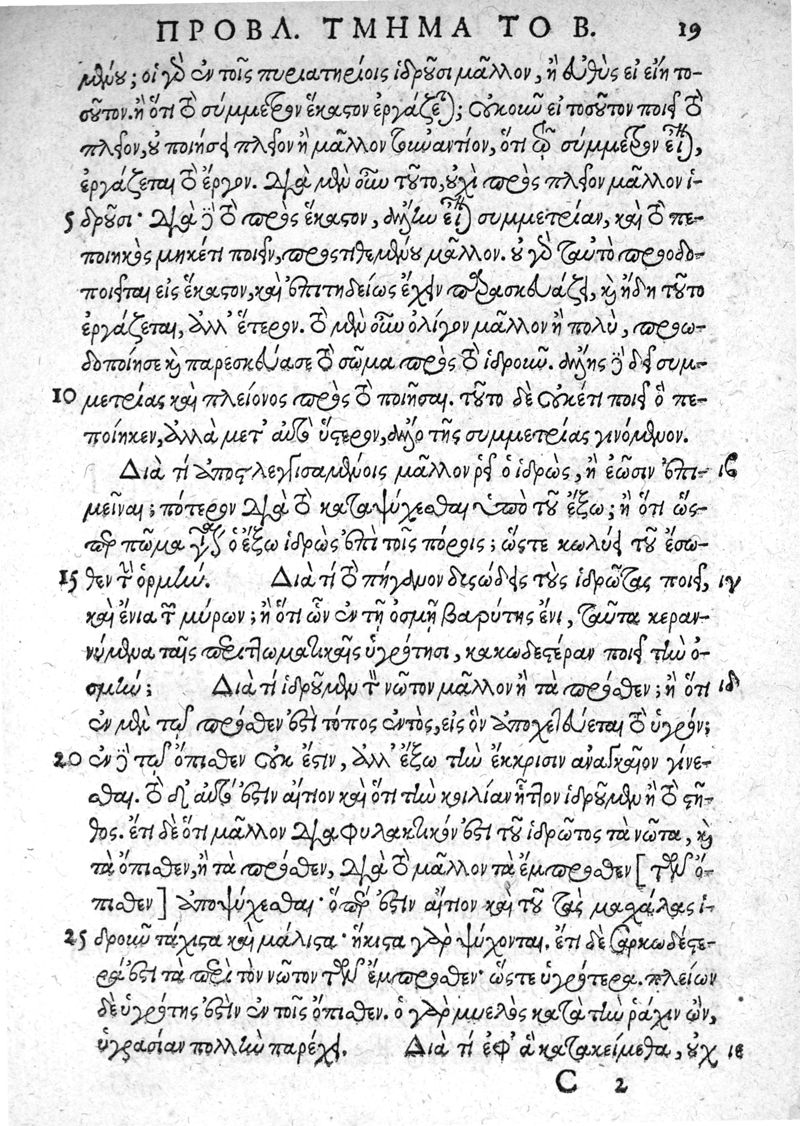 ΠΡΟΒΛ. ΤΜΗΜΑ ΤΟ Β. 19
μένου; οἱ γὰρ ἐν τοῖς πυριατηρίοις ἱδροῦσι μᾶλλον, ἢ εὐθὺς εἰ εἴη το-
σοῦτον. ἢ ὅτι τὸ σύμμετρον ἕκαστον ἐργάζεται; οὐκοῦν εἰ τοσοῦτον ποιεῖ τὸ
πλεῖον, οὐ ποιήσει πλεῖον ἢ μᾶλλον τοὐναντίον, ὅτι τῷ σύμμετρον εἶναι,
ἐργάζεται τὸ ἔργον. διὰ μὲν οὖν τοῦτο, οὐχὶ πρὸς πλεῖον μᾶλλον ἱ-
5 δροῦσι· διὰ δὲ τὸ πρὸς ἕκαστον, ἄλλην εἶναι συμμετρίαν, καὶ τὸ πε-
ποιηκὸς μηκέτι ποιεῖν, προστιθεμένου μᾶλλον. οὐ γὰρ ταὐτὸ προοδο-
ποιεῖται εἰς ἕκαστον, καὶ ἐπιτηδείως ἔχειν παρασκευάζει, καὶ ἤδη τοῦτο
ἐργάζεται, ἀλλ' ἕτερον. τὸ μὲν οὖν ὀλίγον μᾶλλον ἢ πολὺ, προω-
δοποίησε καὶ παρεσκεύασε τὸ σῶμα πρὸς τὸ ἱδροῦν. ἄλλης δὲ δεῖ συμ-
10 μετρίας καὶ πλείονος πρὸς τὸ ποιῆσαι. τοῦτο δὲ οὐκέτι ποιεῖ ὃ πε-
ποίηκεν, ἀλλὰ μετ' αὐτὸ ὕστερον, ἄλλο τῆς συμμετρίας γινόμενον.
Διὰ τί ἀποστλεγγισαμένοις μᾶλλον ῥεῖ ὁ ἱδρὼς, ἢ ἐῶσιν ἐπι- ιβ
μεῖναι; πότερον διὰ τὸ καταψύχεσθαι ὑπὸ τοῦ ἔξω; ἢ ὅτι ὥς-
περ πῶμα γίνεται ὁ ἔξω ἱδρὼς ἐπὶ τοῖς πόροις; ὥστε κωλύει τοῦ ἔσω-
15 θεν τὴν ὁρμήν. Διὰ τί τὸ πήγανον δυσώδεις τοὺς ἱδρῶτας ποιεῖ, ιγ
καὶ ἔνια τῶν μύρων; ἢ ὅτι ὧν ἐν τῇ ὀσμῇ βαρύτης ἔνι, ταῦτα κεραν-
νύμενα ταῖς περιττωματικαῖς ὑγρότησι, κακωδεστέραν ποιεῖ τὴν ὀ-
σμήν; Διὰ τί ἱδροῦμεν τὸν νῶτον μᾶλλον ἢ τὰ πρόσθεν; ἢ ὅτι ιδ
ἐν μὲν τῷ πρόσθεν ἐστὶ τόπος ἐντὸς, εἰς ὃν ἀποχετεύεται τὸ ὑγρόν;
20 ἐν δὲ τῷ ὄπισθεν οὐκ ἔστιν, ἀλλ' ἔξω τὴν ἔκκρισιν ἀναγκαῖον γίνε-
σθαι. τὸ δ' αὐτό ἐστιν αἴτιον καὶ ὅτι τὴν κοιλίαν ἧττον ἱδροῦμεν ἢ τὸ στῆ-
θος. ἔτι δὲ ὅτι μᾶλλον διαφυλακτικόν ἐστι τοῦ ἱδρῶτος τὰ νῶτα, καὶ
τὰ ὄπισθεν, ἢ τὰ πρόσθεν, διὰ τὸ μᾶλλον τὰ ἔμπροσθεν [τῶν ὄ-
πισθεν] ἀποψύχεσθαι· ὅπερ ἐστὶν αἴτιον καὶ τοῦ τὰς μαχάλας ἱ-
25 δροῦν τάχιστα καὶ μάλιστα· ἥκιστα γὰρ ψύχονται. ἔτι δὲ σαρκωδέστε-
ρά ἐστι τὰ περὶ τὸν νῶτον τῶν ἔμπροσθεν· ὥστε ὑγρότερα. πλείων
δὲ ὑγρότης ἐστὶν ἐν τοῖς ὄπισθεν. ὁ γὰρ μυελὸς κατὰ τὴν ῥάχιν ὢν,
ὑγρασίαν πολλὴν παρέχει. Διὰ τί ἐφ' ἃ κατακείμεθα, οὐχ ιε
C 2